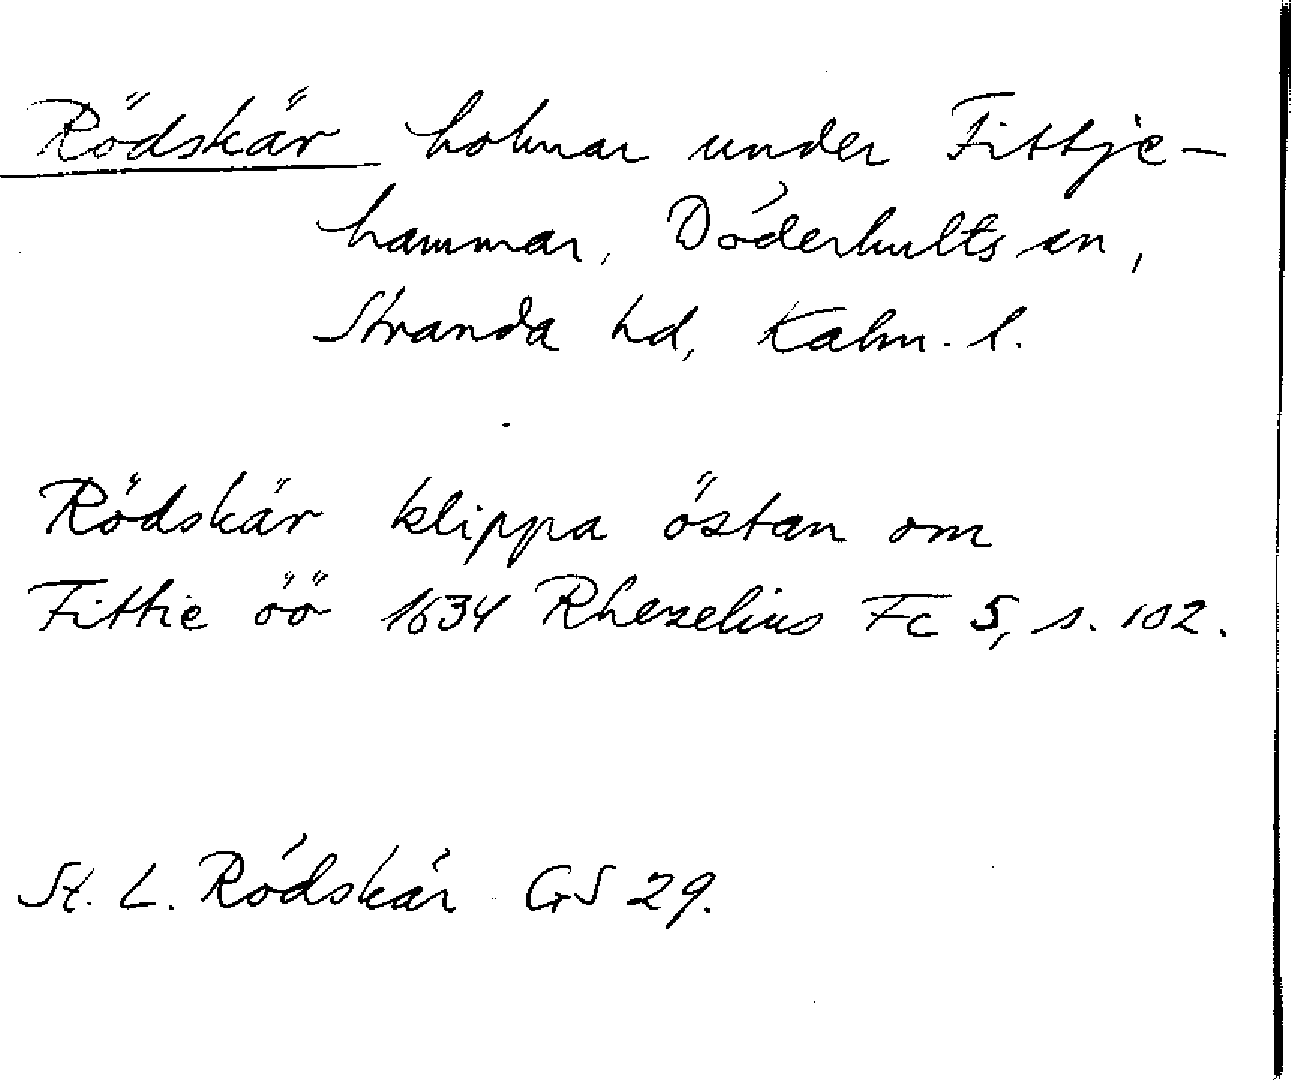 Rödskär holmar under Fittje-
hammar, Döderhults sn,
Stranda hd, Kalm. l.
Rödskär klippa östan om
Fittie öö 1634 Rhezelius Fc 5, s. 102.
St. L. Rödskär GS 29.